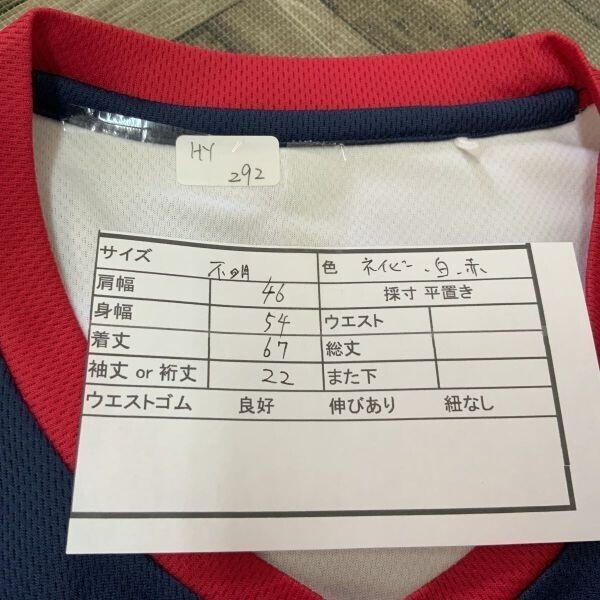 HY
292
サイズ 不明 色 ネイビー・白・赤
肩幅 46 採寸 平置き
身幅 54 ウエスト
着丈 67 総丈
袖丈 or 裄丈 22 また下
ウエストゴム 良好 伸びあり 紐なし